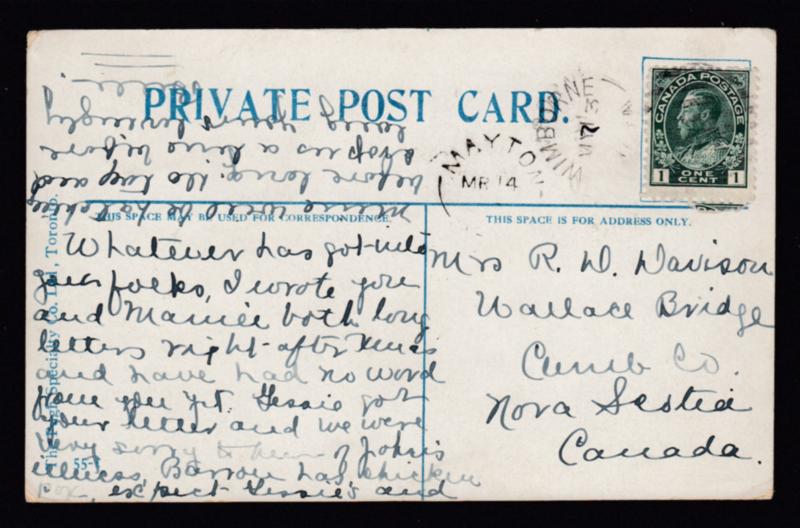 PRIVATE POST CARD.
CANADA POSTAGE
1 ONE CENT 1
WIMBORNE
MAYTON
MR 14
THIS SPACE MAY BE USED FOR CORRESPONDENCE.
THIS SPACE IS FOR ADDRESS ONLY.
Whatever has got into
your folks, I wrote you
and Mamie both long
letters right after Xmas
and have had no word
from you yet. Jessie got
your letter and we were
very sorry to hear of John's
illness, Barron has chicken
Pox, expect Jessie's and
mine will be hatching
before long. Do try and
drop us a line before
long yours lovingly
Mrs R. D. Davison
Wallace Bridge
Cumb Co.
Nova Scotia
Canada.
Specialty Co. Ltd., Toronto.